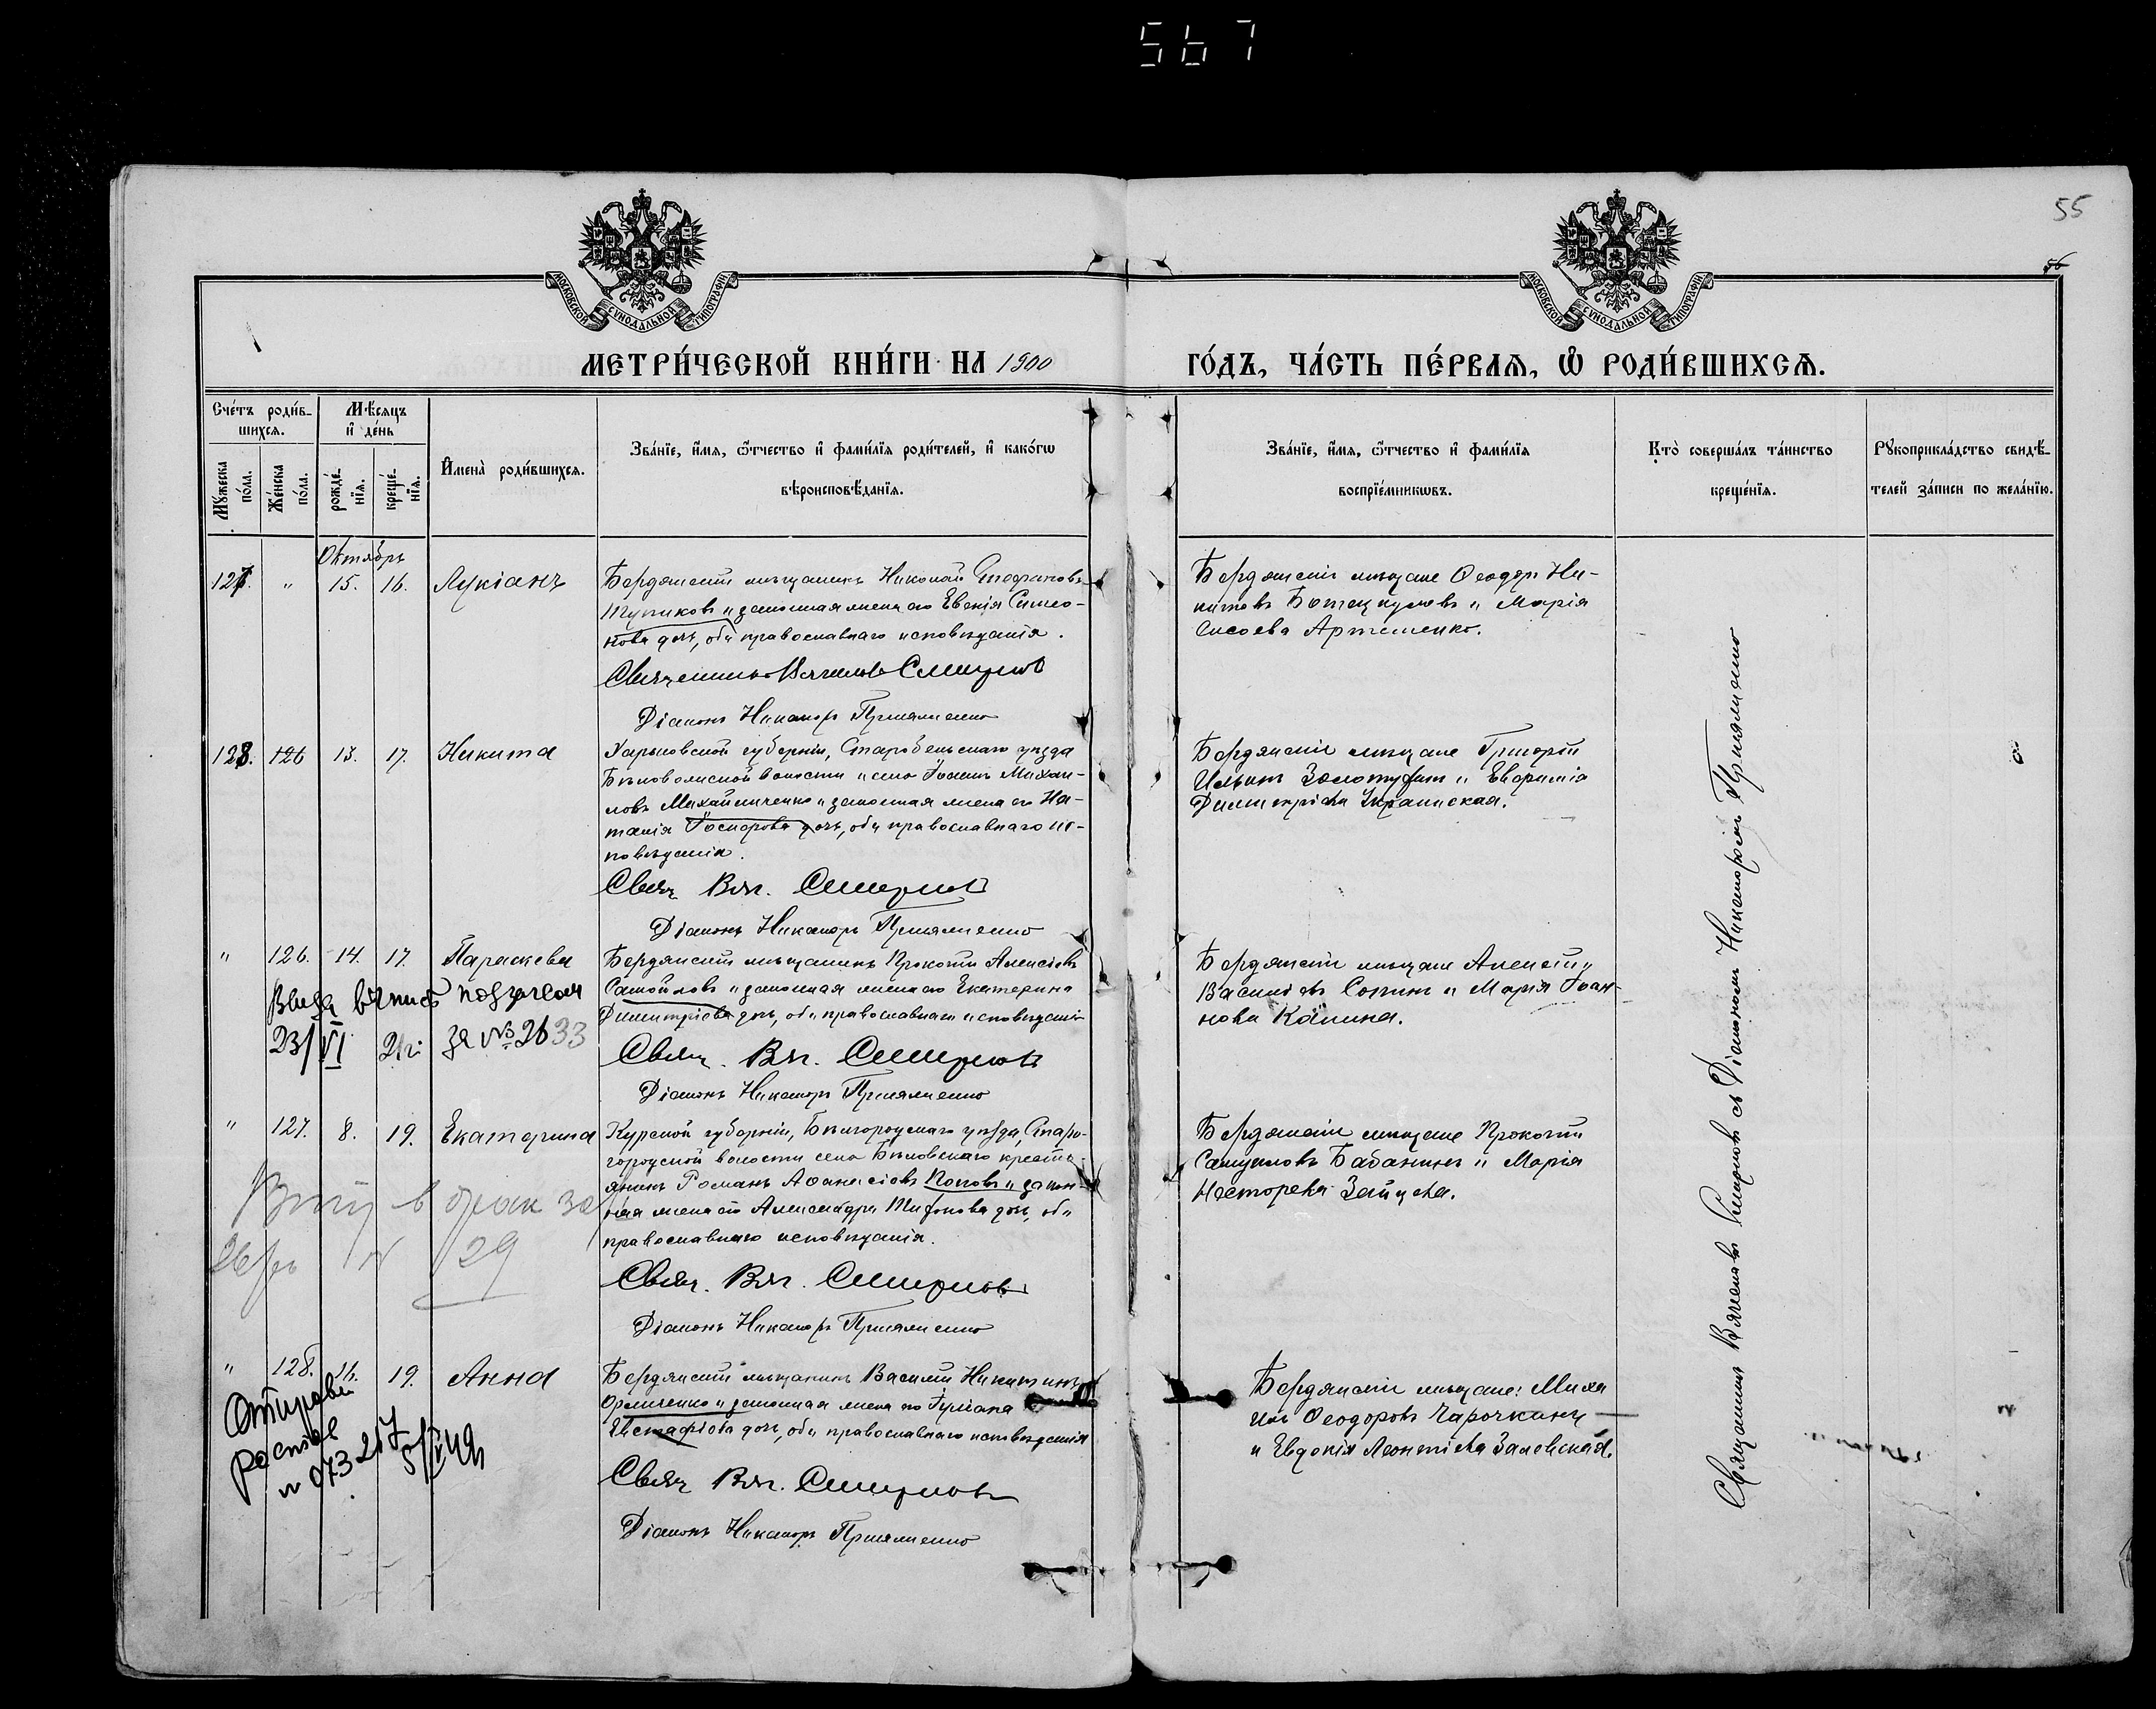 567
55
56
МОСКОВСКОЙ СѴНОДАЛЬНОЙ ТИПОГРАФІИ
МОСКОВСКОЙ СѴНОДАЛЬНОЙ ТИПОГРАФІИ
МЕТРИ́ЧЕСКОЙ КНИ́ГИ НА 1900
ГО́ДЪ, ЧА́СТЬ ПЕ́РВАѦ, Ѡ҆ РОДИ́ВШИХСѦ.
Сче́тъ роди́в-
шихсѧ.
Мѣ́сѧцъ
и҆ де́нь
Мꙋ́жеска
по́ла.
Же́нска
по́ла.
рожде́-
нїѧ.
креще́-
нїѧ.
И҆мена̀ роди́вшихсѧ.
Зва́нїе, и҆́мѧ, ѻ҆́тчество и҆ фами́лїѧ роди́телей, и҆ како́гѡ
вѣроисповѣ́данїѧ.
Зва́нїе, и҆́мѧ, ѻ҆́тчество и҆ фами́лїѧ
воспрїе́мникѡвъ.
Кто̀ соверша́лъ та́инство
креще́нїѧ.
Рꙋкоприкла́дство свидѣ́-
телей за́писи по жела́нїю.
Октябрь
127. " 15. 16. Лукіанъ
Бердянскій мѣщанинъ Николай Стефановъ
Тупиковъ и законная жена его Евгенія Симео-
нова дочь, оба православнаго исповѣданія.
Священникъ Вячеславъ Смирновъ
Діаконъ Никаноръ
Бердянскіе мѣщане Ѳеодоръ Ни-
китовъ и Марія
Сисоева Артеменко.
128. 126 13. 17. Никита
Харьковской губерніи, Старобельскаго уѣзда
Бѣловолиской волости села Іоаннъ Михаи-
ловъ Михайличенко и законная жена его На-
талія дочь, оба православнаго ис-
повѣданія.
Свящ. Вяч. Смирновъ
Діаконъ Никаноръ
Бердянскіе мѣщане Григорій
Ильинъ Золотухинъ и Евфимія
Димитріева Украинская.
" 126. 14. 17. Параскева
Бердянскій мѣщанинъ Прокопій Алексіевъ
Самойловъ и законная жена его Екатерина
Димитріева дочь, оба православнаго исповѣданія
Свящ. Вяч. Смирновъ
Діаконъ Никаноръ
за № 2633
23/VI
Бердянскіе мѣщане Алексій
Васильевъ Сопинъ и Марія Іоан-
нова Калина.
" 127. 8. 19. Екатерина
Курской губерніи, Бѣлгородскаго уѣзда, Старо-
городской волости села Бѣловскаго крестья-
янинъ Романъ Аѳанасіевъ Поповъ и закон-
ная жена его Александра Тихонова дочь, оба
православнаго исповѣданія.
Свящ. Вяч. Смирновъ
Діаконъ Никаноръ
в брак
29
Бердянскіе мѣщане Прокопій
Самуиловъ Бабанинъ и Марія
Несторева Зайцева.
" 128. 16. 19. Анна
Бердянскій мѣщанинъ Василій Никитинъ
и законная жена его Іуліана
Евстафіева дочь, оба православнаго исповѣданія
Свящ. Вяч. Смирновъ
Діаконъ Никаноръ
Бердянскіе мѣщане: Миха
илъ Ѳеодоровъ Чарочкинъ
и Евдокія Леонтіева Залевская.
Священникъ Вячеславъ Смирновъ съ Діакономъ Никаноромъ